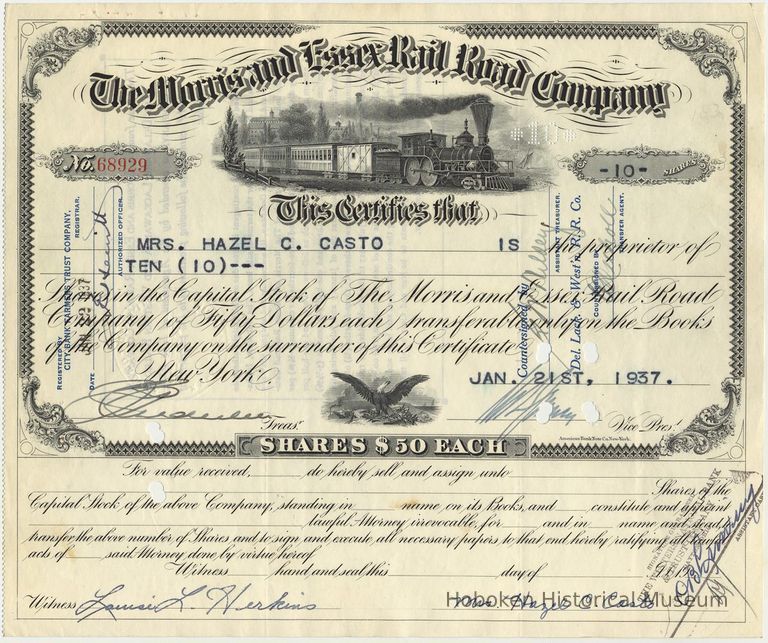 The Morris and Essex Rail Road Company
No. 68929
-10- SHARES
*10*
This Certifies that
MRS. HAZEL C. CASTO IS the proprietor of
TEN (10)---
Shares in the Capital Stock of The Morris and Essex Rail Road
Company (of Fifty Dollars each) transferable only on the Books
of the Company on the surrender of this Certificate
New York. JAN. 21ST, 1937.
Treasr. Vice Prest.
SHARES $50 EACH
American Bank Note Co. New-York.
REGISTERED
CITY BANK FARMERS TRUST COMPANY,
REGISTRAR.
DATE JAN 22 1937
AUTHORIZED OFFICER.
Countersigned by
ASSISTANT TREASURER.
Del. Lack. & West'n R. R. Co.
COUNTERSIGNED BY
TRANSFER AGENT.
For value received, do hereby sell and assign unto
Shares of the
Capital Stock of the above Company, standing in name, on its Books, and constitute and appoint
lawful Attorney irrevocable, for and in name and stead, to
transfer the above number of Shares and to sign and execute all necessary papers to that end, hereby ratifying all lawful
acts of said Attorney done by virtue hereof
Witness hand and seal, this day of 19
Witness Louise L. Herkins Mrs Hazel C Casto
Hoboken Historical Museum